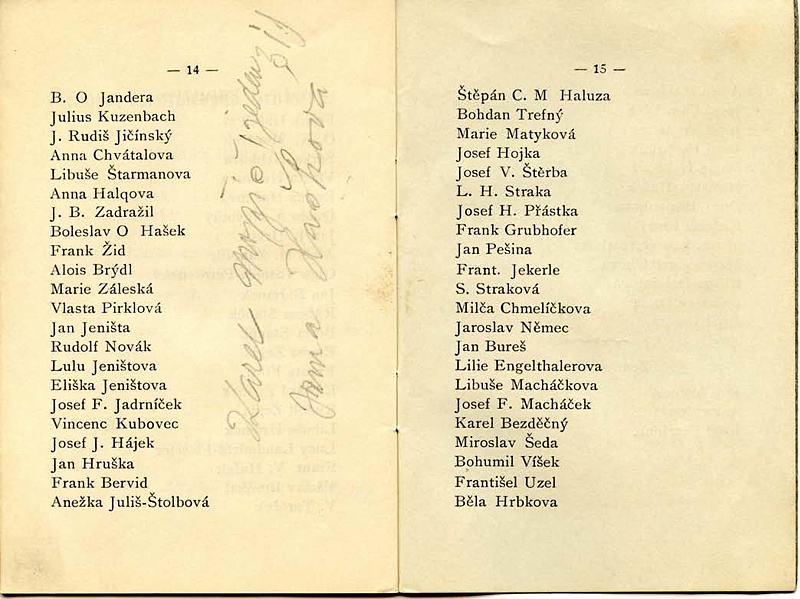 — 14 —
B. O Jandera
Julius Kuzenbach
J. Rudiš Jičínský
Anna Chvátalova
Libuše Štarmanova
Anna Halqova
J. B. Zadražil
Boleslav O Hašek
Frank Žid
Alois Brýdl
Marie Záleská
Vlasta Pirklová
Jan Jeništa
Rudolf Novák
Lulu Jeništova
Eliška Jeništova
Josef F. Jadrníček
Vincenc Kubovec
Josef J. Hájek
Jan Hruška
Frank Bervid
Anežka Juliš-Štolbová
Karel
— 15 —
Štěpán C. M Haluza
Bohdan Trefný
Marie Matyková
Josef Hojka
Josef V. Štěrba
L. H. Straka
Josef H. Přástka
Frank Grubhofer
Jan Pešina
Frant. Jekerle
S. Straková
Milča Chmelíčkova
Jaroslav Němec
Jan Bureš
Lilie Engelthalerova
Libuše Macháčkova
Josef F. Macháček
Karel Bezděčný
Miroslav Šeda
Bohumil Víšek
Františel Uzel
Běla Hrbkova